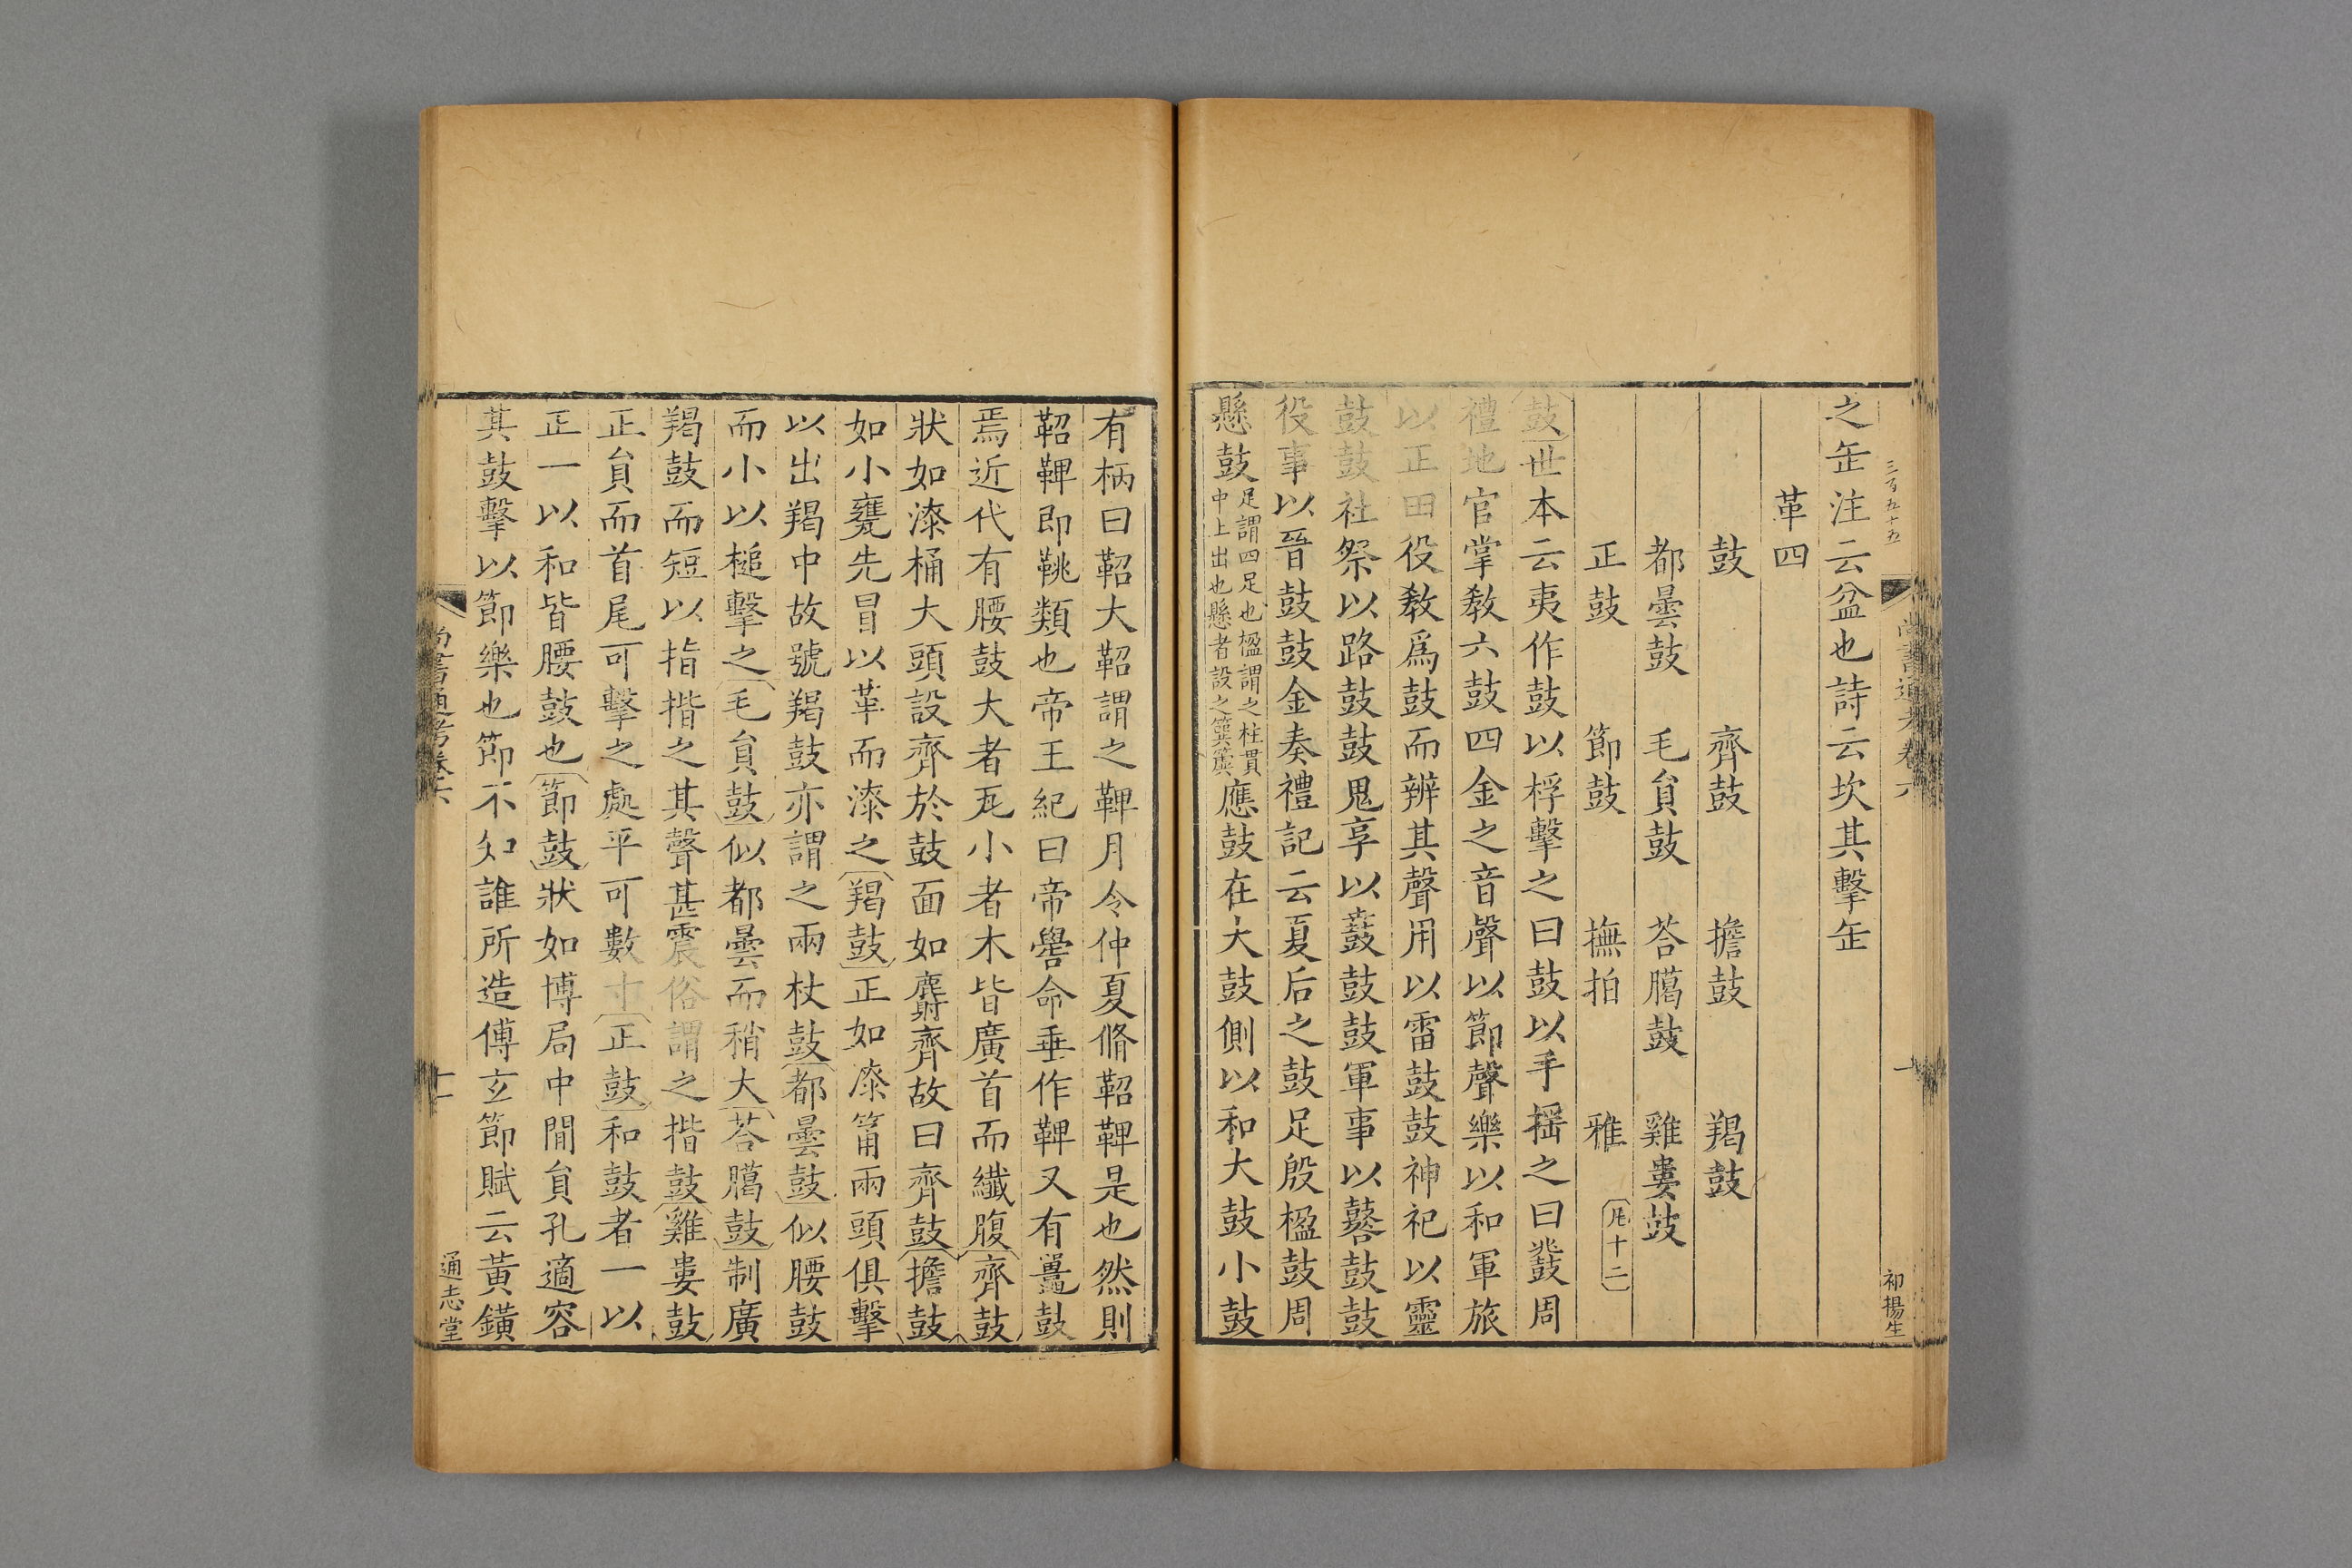 三百五十五
尚書通考卷六
初揚生
之缶注云盆也詩云坎其擊缶
革四
鼓　齊鼓　擔鼓　羯鼓
都曇鼓　毛貟鼓　荅臈鼓　雞婁鼓
正鼓　節鼓　撫拍　雅　凡十二
鼓世本云夷作鼓以桴擊之曰鼓以手揺之曰鼗周
禮地官掌敎六鼓四金之音聲以節聲樂以和軍旅
以正田役敎爲鼓而辨其聲用以雷鼓鼓神祀以靈
鼓鼓社祭以路鼓鼓鬼享以鼖鼓鼓軍事以鼛鼓鼓
役事以晉鼓鼓金奏禮記云夏后之鼓足殷楹鼓周
懸鼓足謂四足也楹謂之柱貫中上出也懸者設之簨簴應鼓在大鼓側以和大鼓小鼓
有柄曰鞀大鞀謂之鞞月令仲夏脩鞀鞞是也然則
鞀鞞即鞉類也帝王紀曰帝嚳命垂作鞞又有鼉鼓
焉近代有腰鼓大者瓦小者木皆廣首而纖腹齊鼓
狀如漆桶大頭設齊於鼓面如麝齊故曰齊鼓擔鼓
如小甕先冒以革而漆之羯鼓正如漆筩兩頭俱擊
以出羯中故號羯鼓亦謂之兩杖鼓都曇鼓似腰鼓
而小以槌擊之毛貟鼓似都曇而稍大荅臈鼓制廣
羯鼓而短以指揩之其聲甚震俗謂之揩鼓雞婁鼓
正貟而首尾可擊之處平可數寸正鼓和鼓者一以
正一以和皆腰鼓也節鼓狀如博局中閒貟孔適容
其鼓擊以節樂也節不知誰所造傅玄節賦云黃鐄
尚書通考卷六
十一
通志堂